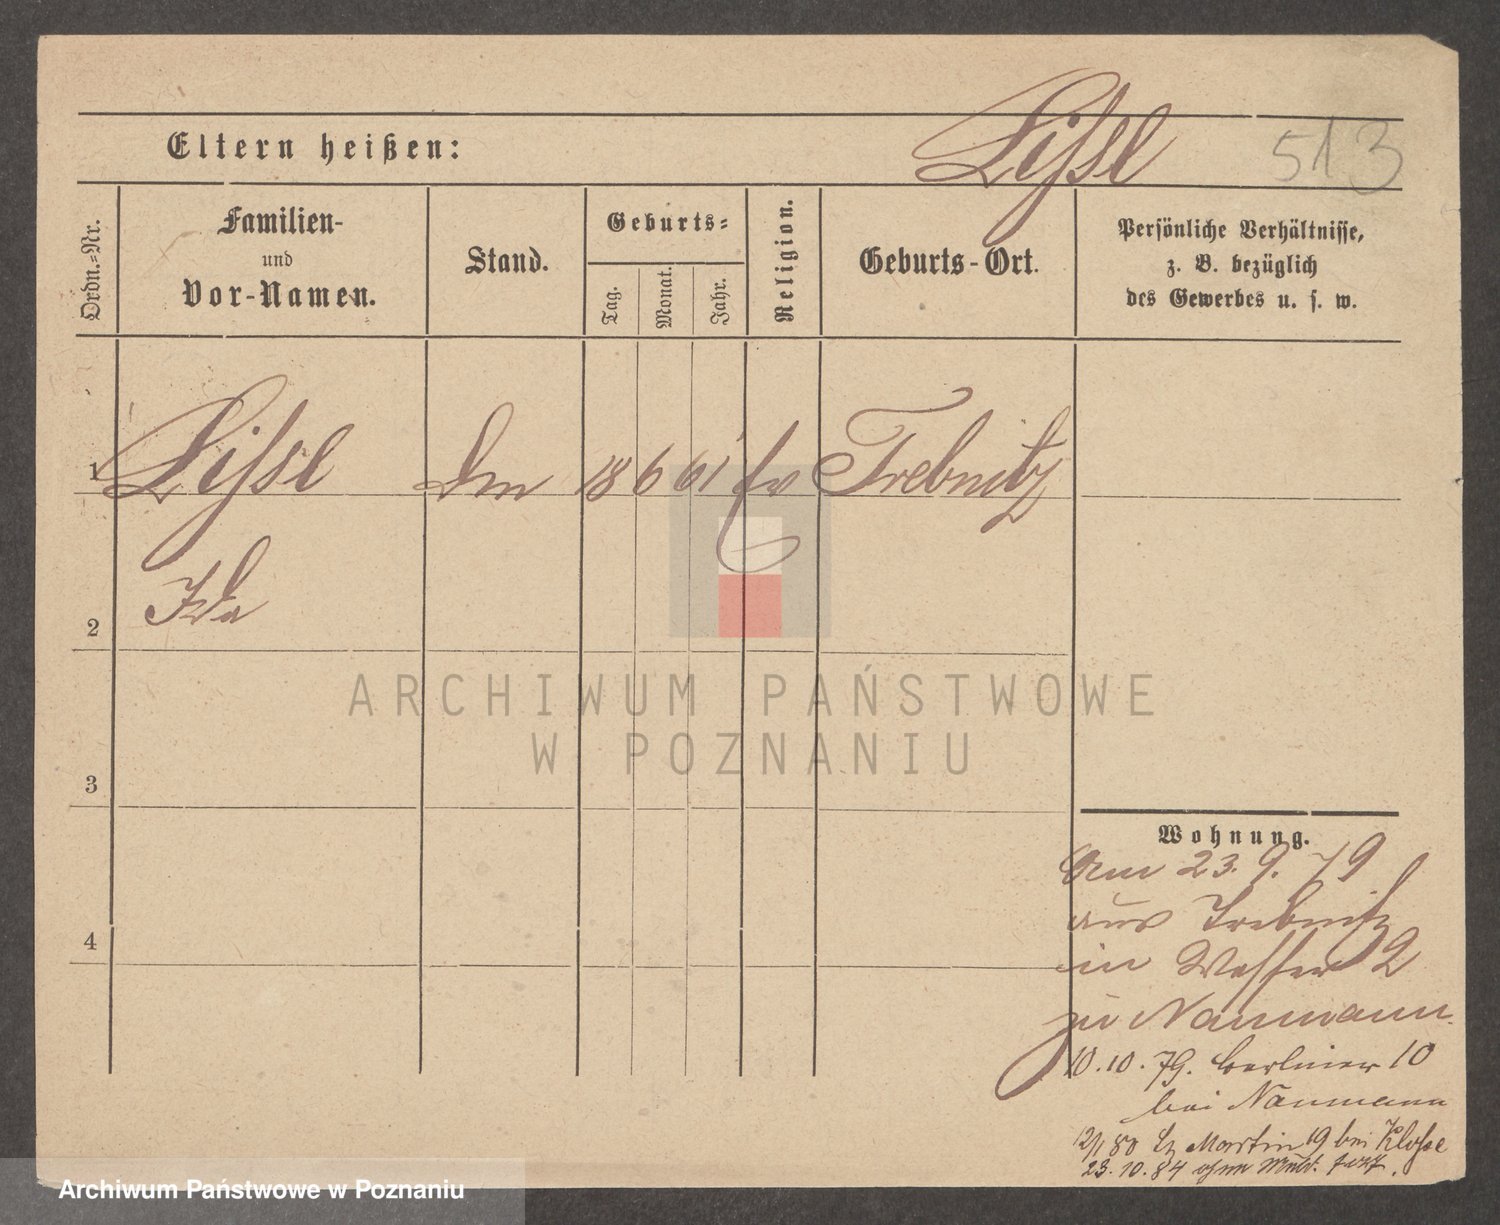 Lißl 513
Eltern heißen:
Ordn.-Nr.
Familien-
und
Vor-Namen.
Stand.
Geburts-
Tag.
Monat.
Jahr.
Religion.
Geburts-Ort.
Persönliche Verhältnisse,
z. B. bezüglich
des Gewerbes u. s. w.
1 18 6 61 Trebnitz
Ida
2
3
4
ARCHIWUM PAŃSTWOWE
W POZNANIU
Wohnung.
Am 23. 9. 79
aus Trebnitz
in Wasser 2
zu Naumann
10. 10. 79. Berliner 10
bei Naumann
12/1 80 St Martin 19 bei Klose
23. 10. 84 ohne fort.
Archiwum Państwowe w Poznaniu